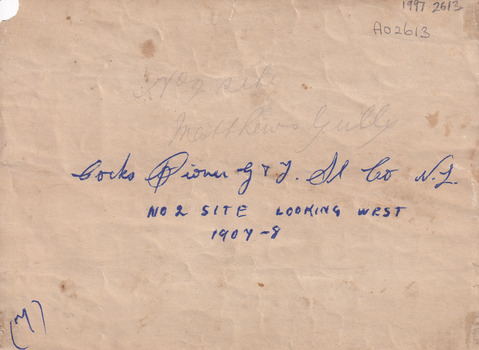 1997 2613
A02613
No 2 site
Matthews Gully
Cocks Pioneer G & T. Sl Co N.L.
NO 2 SITE LOOKING WEST
1907-8
(M)